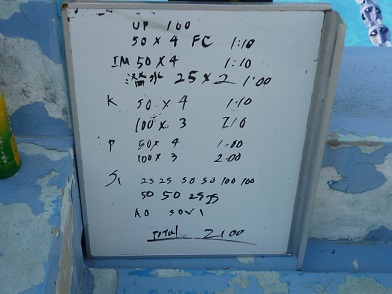 UP 100
50 × 4 FC 1:10
IM 50 × 4 1:10
潜水 25 × 2 1:00
K 50 × 4 1:10
100 × 3 2:10
P 50 × 4 1:00
100 × 3 2:00
S1 25 25 50 50 100 100
50 50 25 25
AO 50 × 1
TOTAL 2100